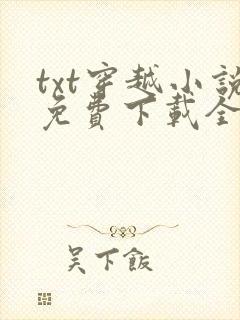 txt穿越小說
免費下載全
吳下飯